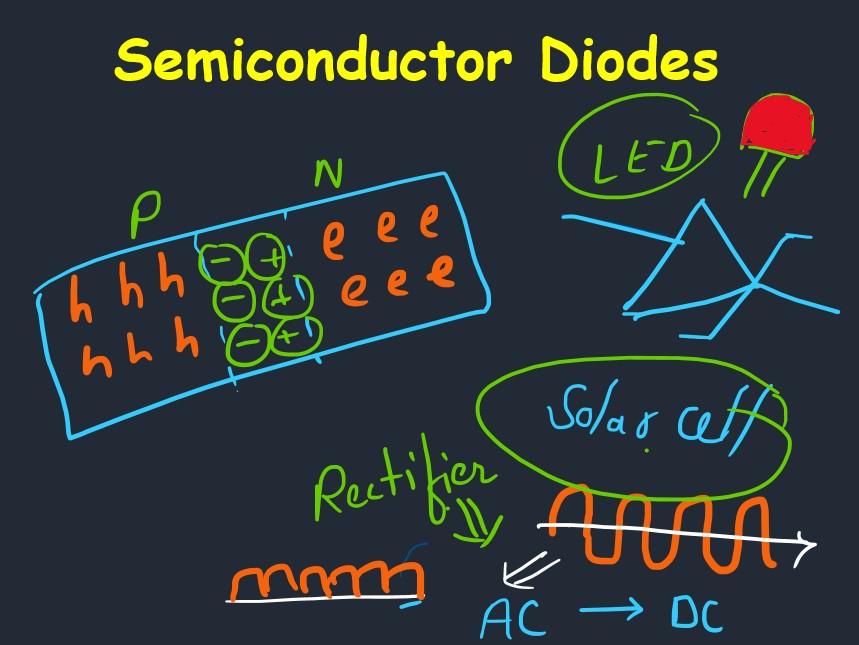 Semiconductor Diodes
LED
P N
h h h - + e e e
- + e e e
h h h - +
Solar cell
Rectifier
AC → DC